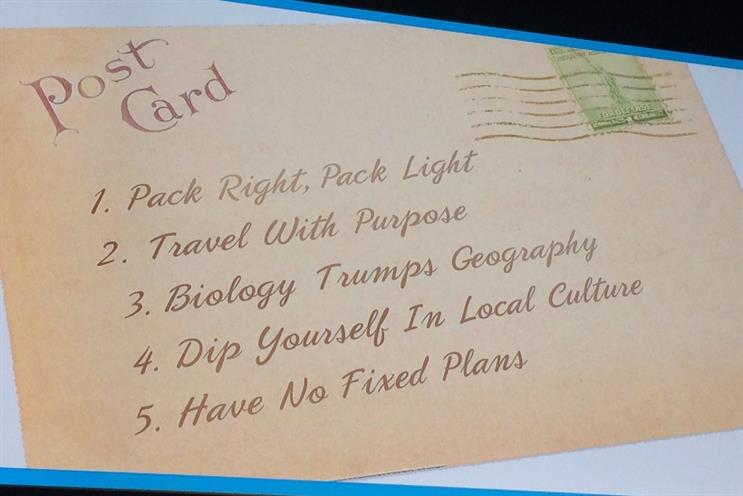 Post
Card
FOR DEFENSE
1. Pack Right, Pack Light
2. Travel With Purpose
3. Biology Trumps Geography
4. Dip Yourself In Local Culture
5. Have No Fixed Plans